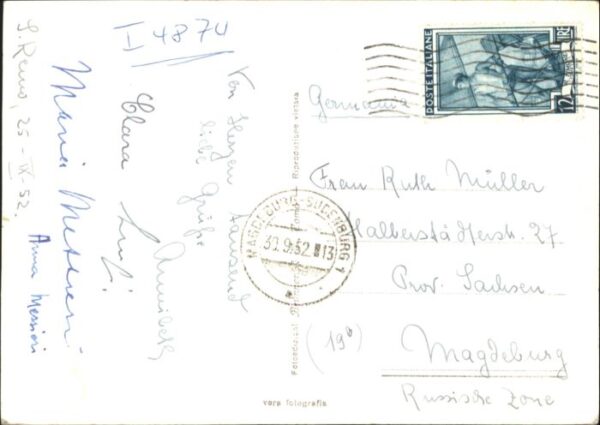 I 4874
S. Remo, 25-IX-52.
Von Herzen tausend
liebe Grüße
Annibeth
Clara
Luigi
Maria
Anna
POSTE ITALIANE
LIRE
12
Germania
Frau Ruth Müller
Halberstädterstr. 27
Prov. Sachsen
(19b)
Magdeburg
Russische Zone
MAGDEBURG-SUDENBURG 1
30.9.52 13
Riproduzione vietata
vera fotografia